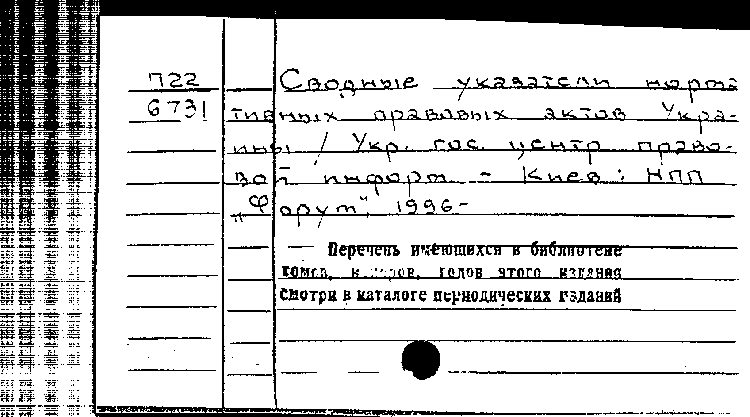 П22 Сводные указатели норма
6731 тивных правовых актов Укра-
ины / Укр. гос. центр право-
вой информ. - Киев: НПП
„Форум", 1996-
— Перечень имеющихся в библиотеке
томов, номеров, годов этого издания
смотри в каталоге периодических изданий